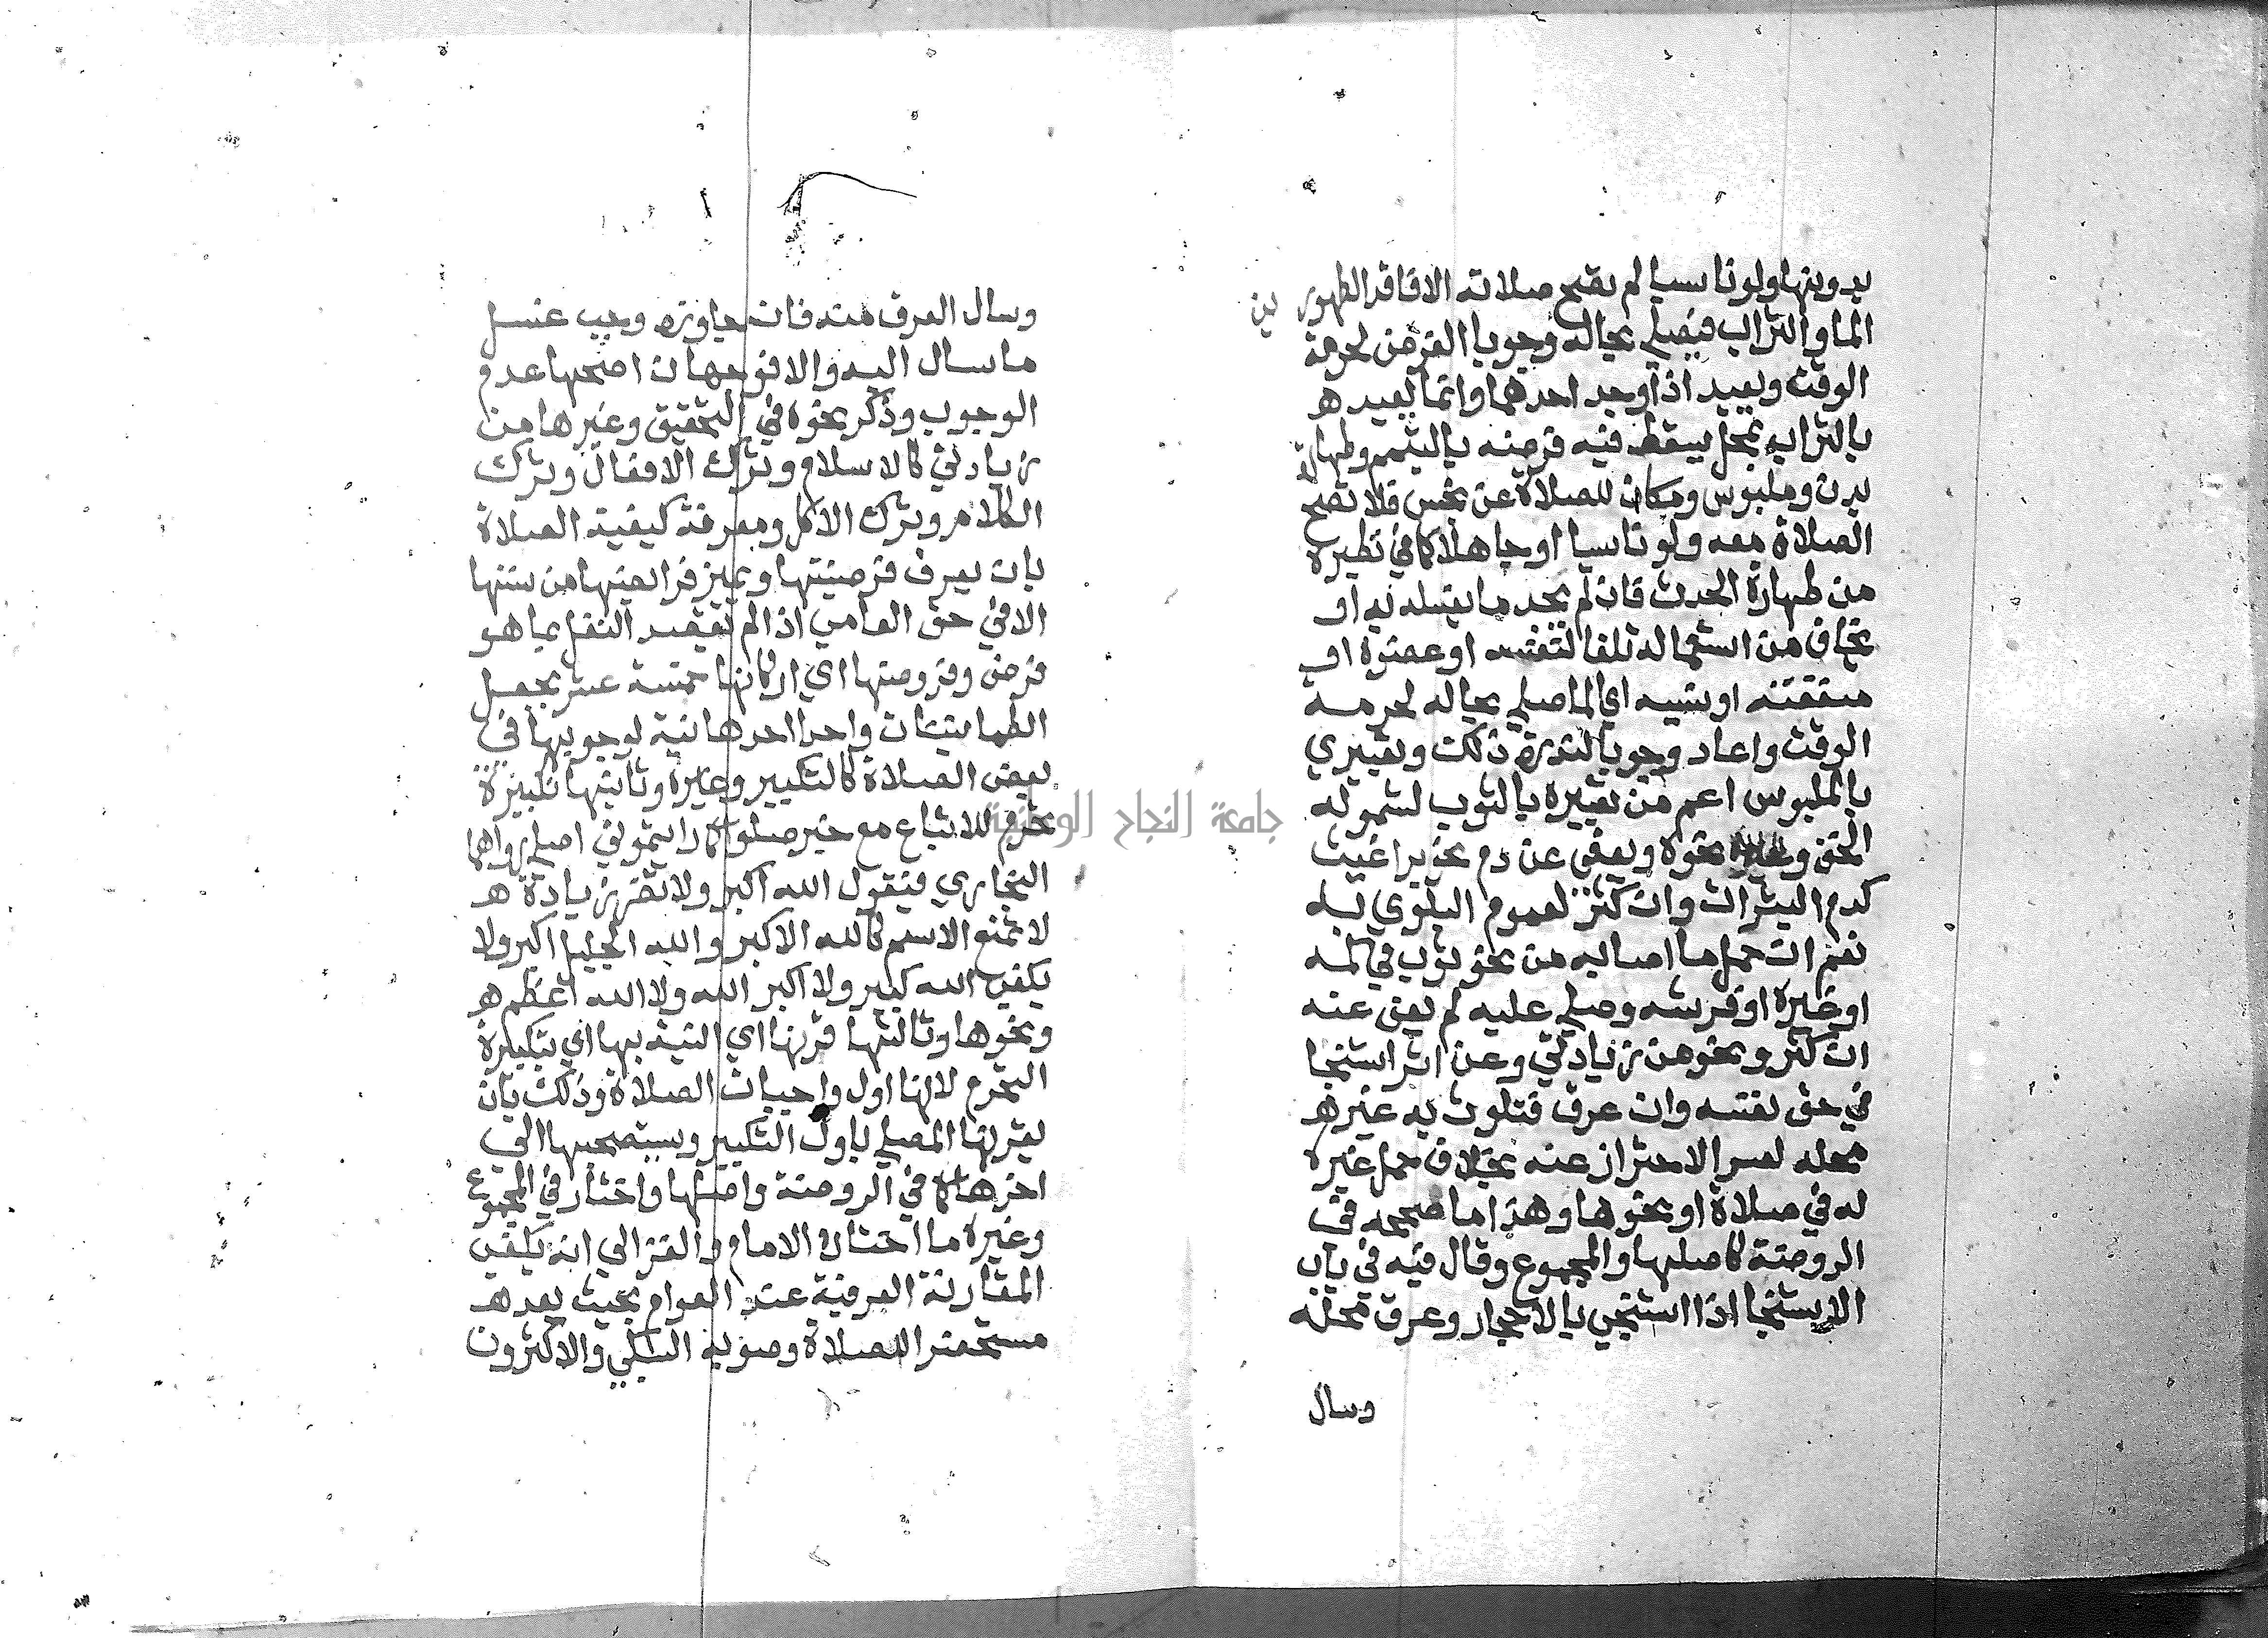 بدونها ولو ناسيا لم تصح صلاته الا فاقد الطهورين
الما والتراب فيصلي بحاله وجوبا الفرض لحرمة
الوقت ويعيد اذا وجد احدهما وانما يعيد ه
بالتراب بمحل يسقط فيه فرضه بالتيمم وطهارة
بدن وملبوس ومكان للصلاة عن نجس فلا تصح
الصلاة معه ولو ناسيا او جاهلا كما في نظيره
من طهارة الحدث فان لم يجد ما يغسله به او
يخاف من استعماله تلفا لنفسه او عضوه او
منفعته او شيبه اي الما صلي بحاله لحرمة
الوقت واعاد وجوبا لندرة ذلك وتعبيري
بالملبوس اعم من تعبيره بالثوب لشموله
الخف ونحوه ويعفى عن دم نحو براغيث
كدم البثرات وان كثر لعموم البلوي به
نعم ان حمل ما اصابه من نحو ثوب في كمه
او غيره او فرشه وصلي عليه لم يعف عنه
ان كثر ونحو من زيادتي وعن اثر استنجا
في حق نفسه وان عرق فتلوث به غير ه
محله لعسر الاحتراز عنه بخلاف حمل غيره
له في صلاة او نحوها وهذا ما صححه في
الروضة كاصلها والمجموع وقال فيه في باب
الاستنجا اذا استنجى بالاحجار وعرق محله
وسال
وسال العرق منه فان جاوزه وجب غسل
ما سال اليه والا فوجهان اصحهما عدم
الوجوب وذكر نحوه في التحقيق وغيرها من
زيادتي كالاسلام وترك الافعال وترك
الكلام وترك الاكل ومعرفة كيفية الصلاة
بان يعرف فرضيتها ويميز فرائضها من سننها
الا في حق العامي اذا لم يقصد النفل بما هو
فرض وفروضها اي اركانها خمسة عشر بجعل
الطمانينات واحدا احدها نية لوجوبها في
بعض الصلاة كالتكبير وغيره وثانيها تكبيرة
تحرم للاتباع مع خبر صلوا كما رايتموني اصلي رواهما
البخاري فيقول الله اكبر ولا تضر زيادة ه
لا تمنع الاسم كالله الاكبر والله الجليل اكبر ولا
يكفي الله كبير ولا اكبر الله ولا الله اعظم ه
ونحوها وثالثها قرنها اي النية بها اي بتكبيرة
التحرم لانها اول واجبات الصلاة وذلك بان
يقرنها المصلي باول التكبير ويستصحبها الى
اخرها كما في الروضة واصلها واختار في المجموع
وغيره ما اختاره الامام والغزالي انه يكفي
المقارنة العرفية عند العوام بحيث يعد ه
مستحضرا للصلاة وصوبه السبكي والاكثرون
جامعة النجاح الوطنية